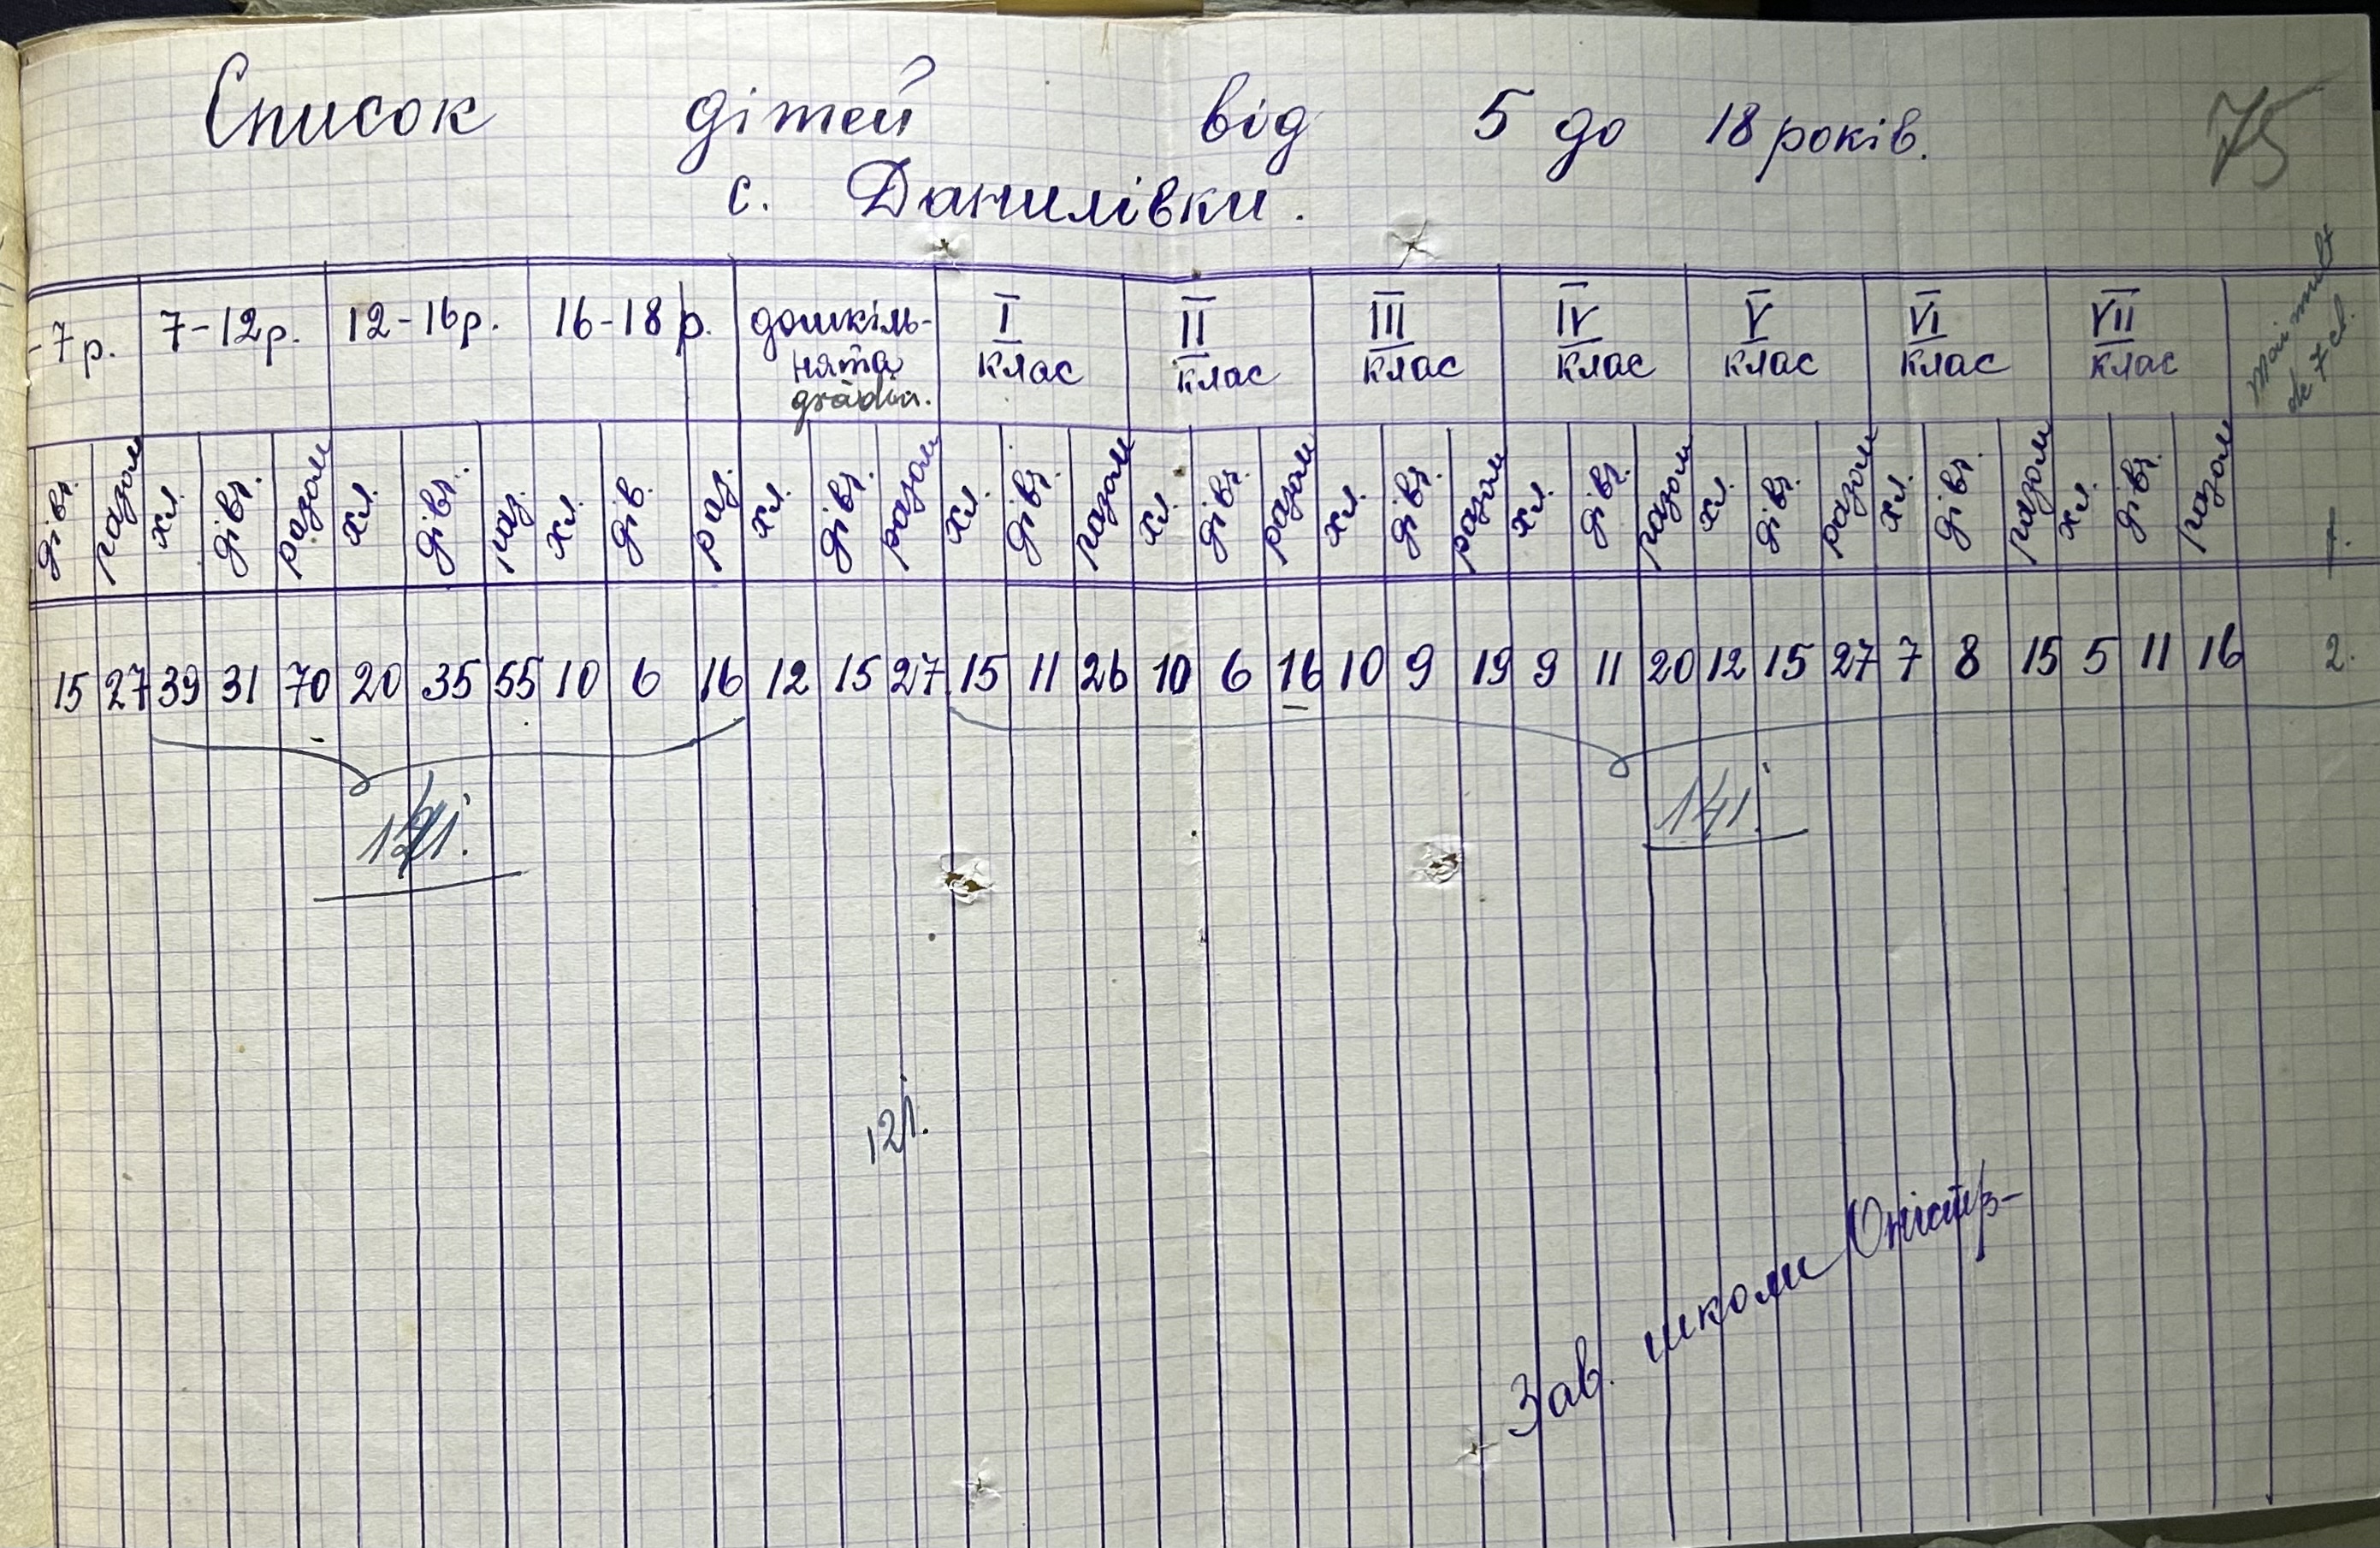 Список дітей від 5 до 18 років.
75
с. Данилівки.
-7р. 7-12р. 12-16р. 16-18р. дошкіль- I II III IV V VI VII Mai mult
нята клас клас клас клас клас клас клас de 7 cl.
grădin.
дівч. разом хл. дівч. разом хл. дівч. раз. хл. дів. раз. хл. дівч. разом хл. дівч. разом хл. дівч. разом хл. дівч. разом хл. дівч. разом хл. дівч. разом хл. дівч. разом хл. дівч. разом
15 27 39 31 70 20 35 55 10 6 16 12 15 27 15 11 26 10 6 16 10 9 19 9 11 20 12 15 27 7 8 15 5 11 16 2.
141.
121.
Зав. школи